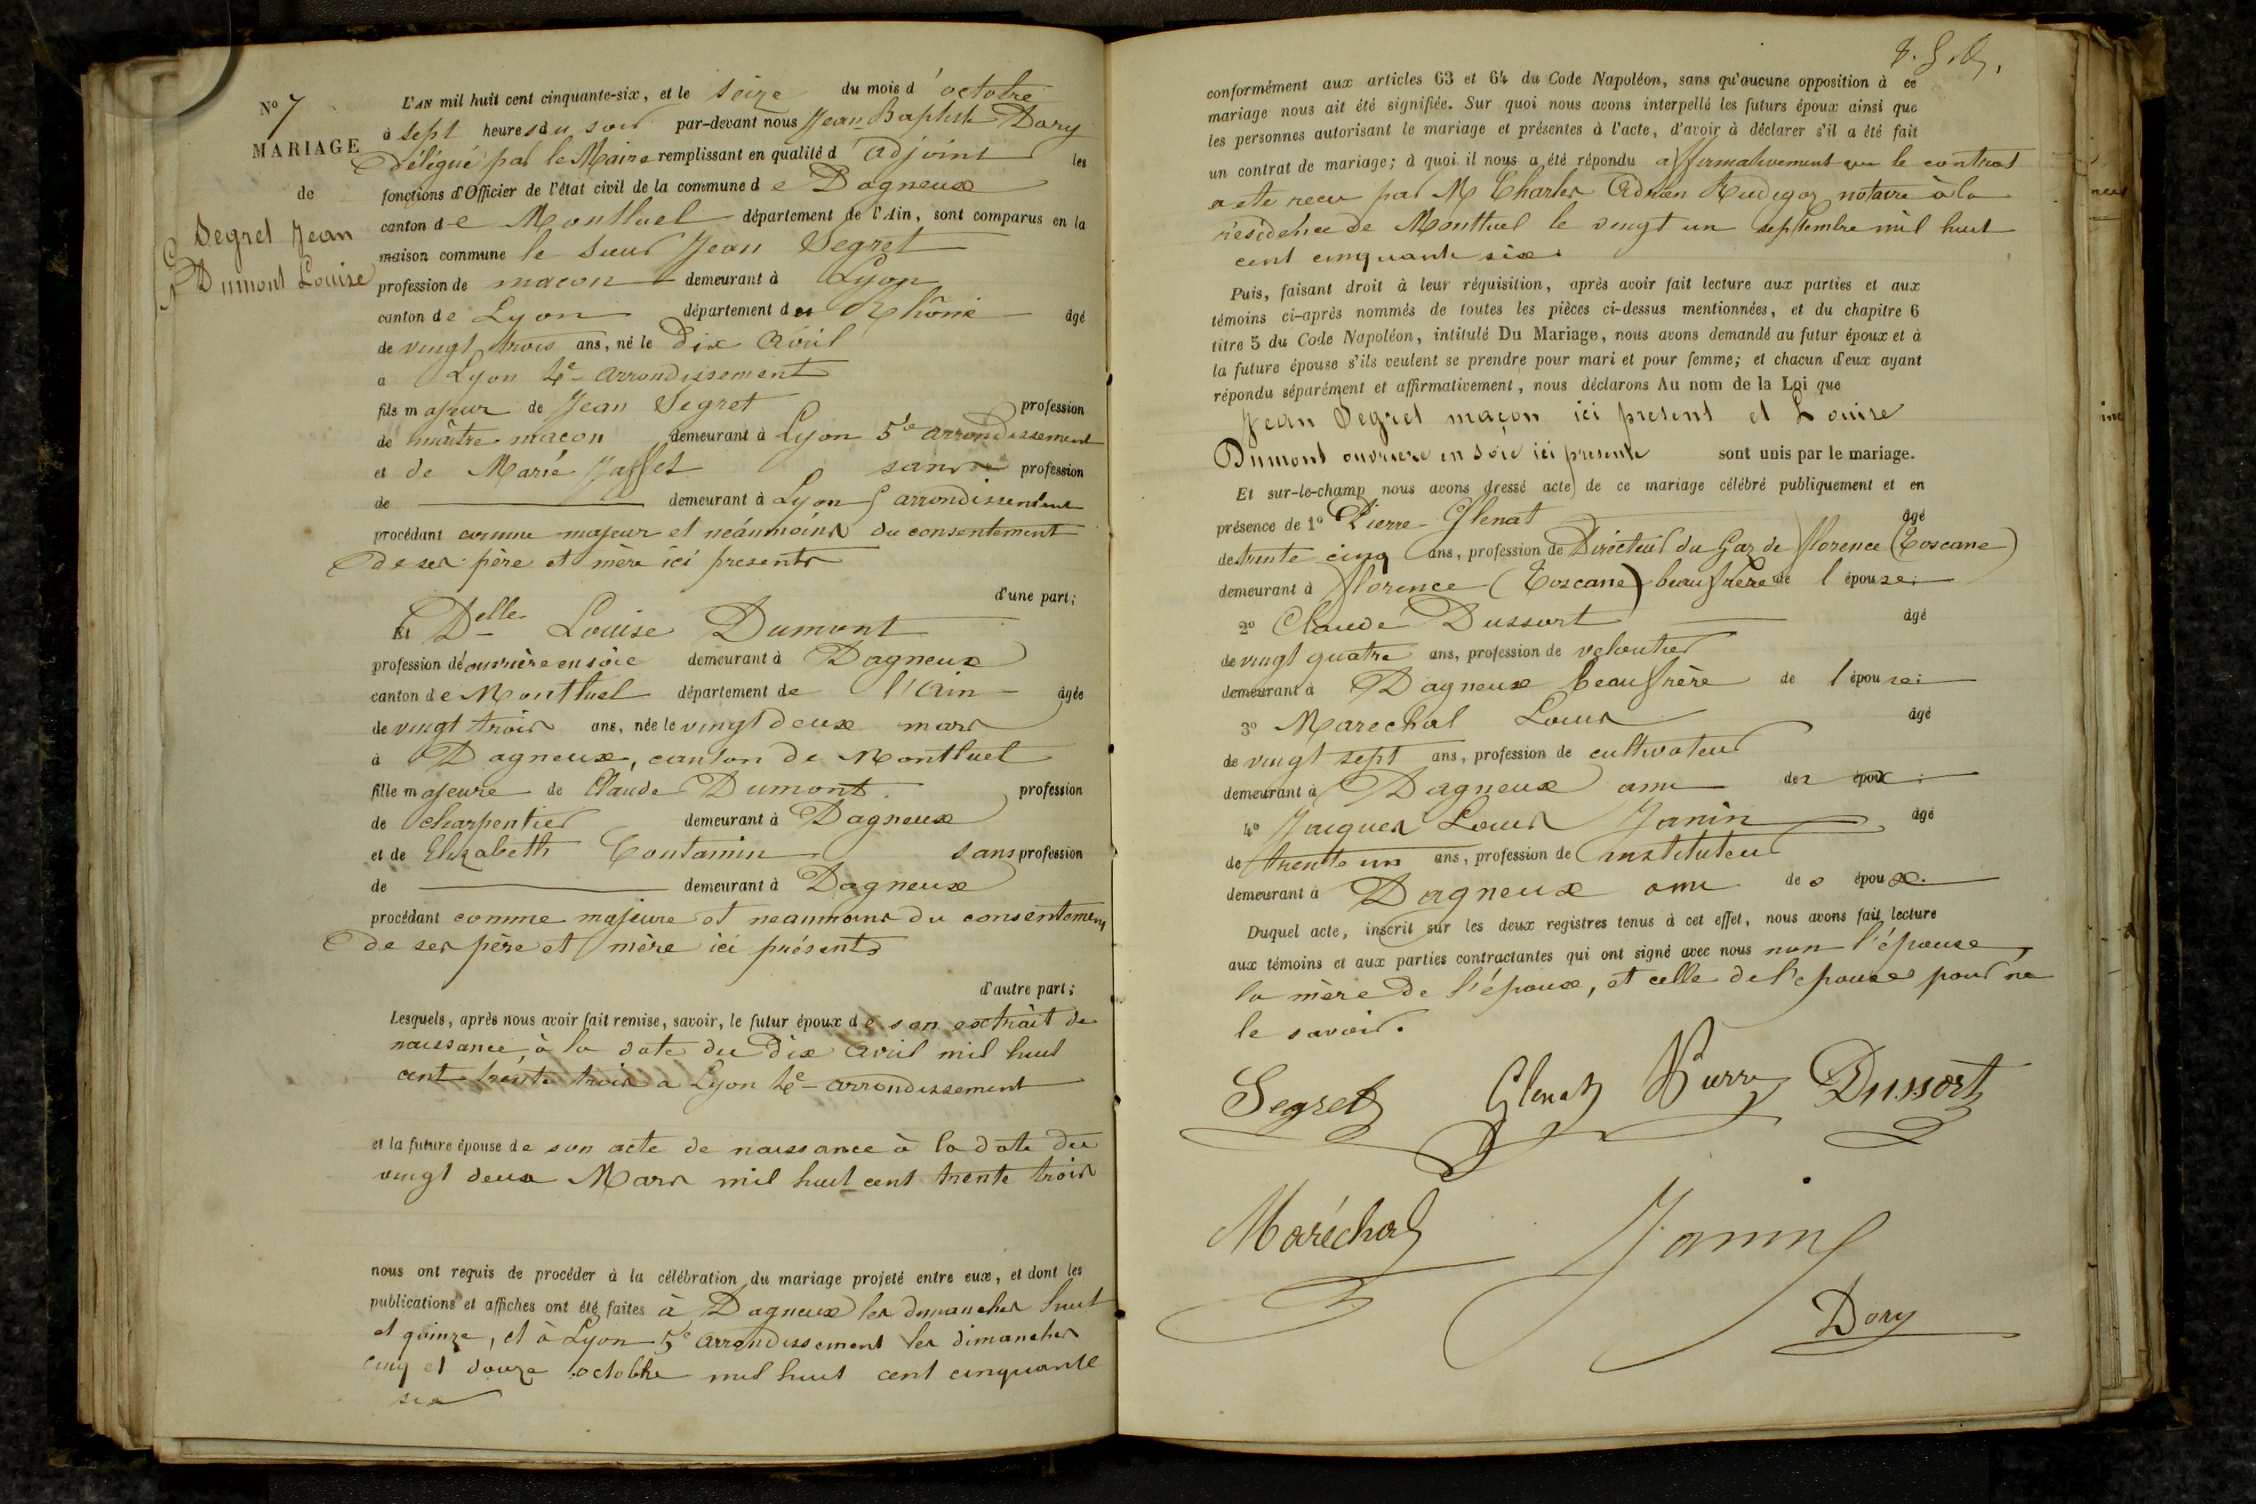 N° 7
MARIAGE
de
Segret Jean
&
Dumont Louise
L'AN mil huit cent cinquante-six, et le seize du mois d'octobre
à sept heures du soir par-devant nous Jean-Baptiste Dory
Délégué par le Maire remplissant en qualité d'adjoint les
fonctions d'Officier de l'état civil de la commune de Dagneux
canton de Montluel département de l'Ain, sont comparus en la
maison commune le sieur Jean Segret
profession de maçon demeurant à Lyon
canton de Lyon département du Rhône âgé
de vingt trois ans, né le Dix Avril
a Lyon 4e arrondissement
fils majeur de Jean Segret profession
de maître maçon demeurant à Lyon 5e arrondissement
et de Marie Jaffet sans profession
de demeurant à Lyon 5 arrondissement
procédant comme majeur et néanmoins du consentement
de ses père et mère ici presents
d'une part;
Et Delle Louise Dumont
profession d'ouvrière en soie demeurant à Dagneux
canton de Montluel département de l'Ain âgée
de vingt trois ans, née le vingt deux mars
à Dagneux, canton de Montluel
fille majeure de Claude Dumont profession
de charpentier demeurant à Dagneux
et de Elizabeth Contamin sans profession
de demeurant à Dagneux
procédant comme majeure et neanmoins du consentement
de ses père et mère ici présents
d'autre part;
Lesquels, après nous avoir fait remise, savoir, le futur époux de son extrait de
naissance, à la date du Dix avril mil huit
cent trente trois a Lyon 4e arrondissement
et la future épouse de son acte de naissance à la date du
vingt deux Mars mil huit cent trente trois
nous ont requis de procéder à la célébration du mariage projeté entre eux, et dont les
publications et affiches ont été faites à Dagneux les dimanches huit
et quinze, et à Lyon 5e arrondissement les dimanches
cinq et douze octobre mil huit cent cinquante
six
conformément aux articles 63 et 64 du Code Napoléon, sans qu'aucune opposition à ce
mariage nous ait été signifiée. Sur quoi nous avons interpellé les futurs époux ainsi que
les personnes autorisant le mariage et présentes à l'acte, d'avoir à déclarer s'il a été fait
un contrat de mariage; à quoi il nous a été répondu affirmativement que le contrat
a ete recu par M Charles Adrien Rudigoz notaire à la
résidence de Montluel le vingt un septembre mil huit
cent cinquante six.
Puis, faisant droit à leur réquisition, après avoir fait lecture aux parties et aux
témoins ci-après nommés de toutes les pièces ci-dessus mentionnées, et du chapitre 6
titre 5 du Code Napoléon, intitulé Du Mariage, nous avons demandé au futur époux et à
la future épouse s'ils veulent se prendre pour mari et pour femme; et chacun d'eux ayant
répondu séparément et affirmativement, nous déclarons Au nom de la Loi que
Jean Segret maçon ici present et Louise
Dumont ouvriere en soie ici presente sont unis par le mariage.
Et sur-le-champ nous avons dressé acte de ce mariage célébré publiquement et en
présence de 1° Pierre Glenat âgé
de trente cinq ans, profession de Directeur du Gaz de florence (Toscane)
demeurant à florence (Toscane) beaufrère de l'épouse;
2° Claude Dussort âgé
de vingt quatre ans, profession de veloutier
demeurant à Dagneux beaufrère de l'épouse;
3° Marechal Louis âgé
de vingt sept ans, profession de cultivateur
demeurant à Dagneux ami des époux;
4° Jacques Louis Janin âgé
de trente un ans, profession de instituteur
demeurant à Dagneux ami des époux.
Duquel acte, inscrit sur les deux registres tenus à cet effet, nous avons fait lecture
aux témoins et aux parties contractantes qui ont signé avec nous non l'épouse,
la mère de l'époux, et celle de l'epouse pour ne
le savoir.
Segret Glenat Pierre Dussort
Maréchal Janin
Dory